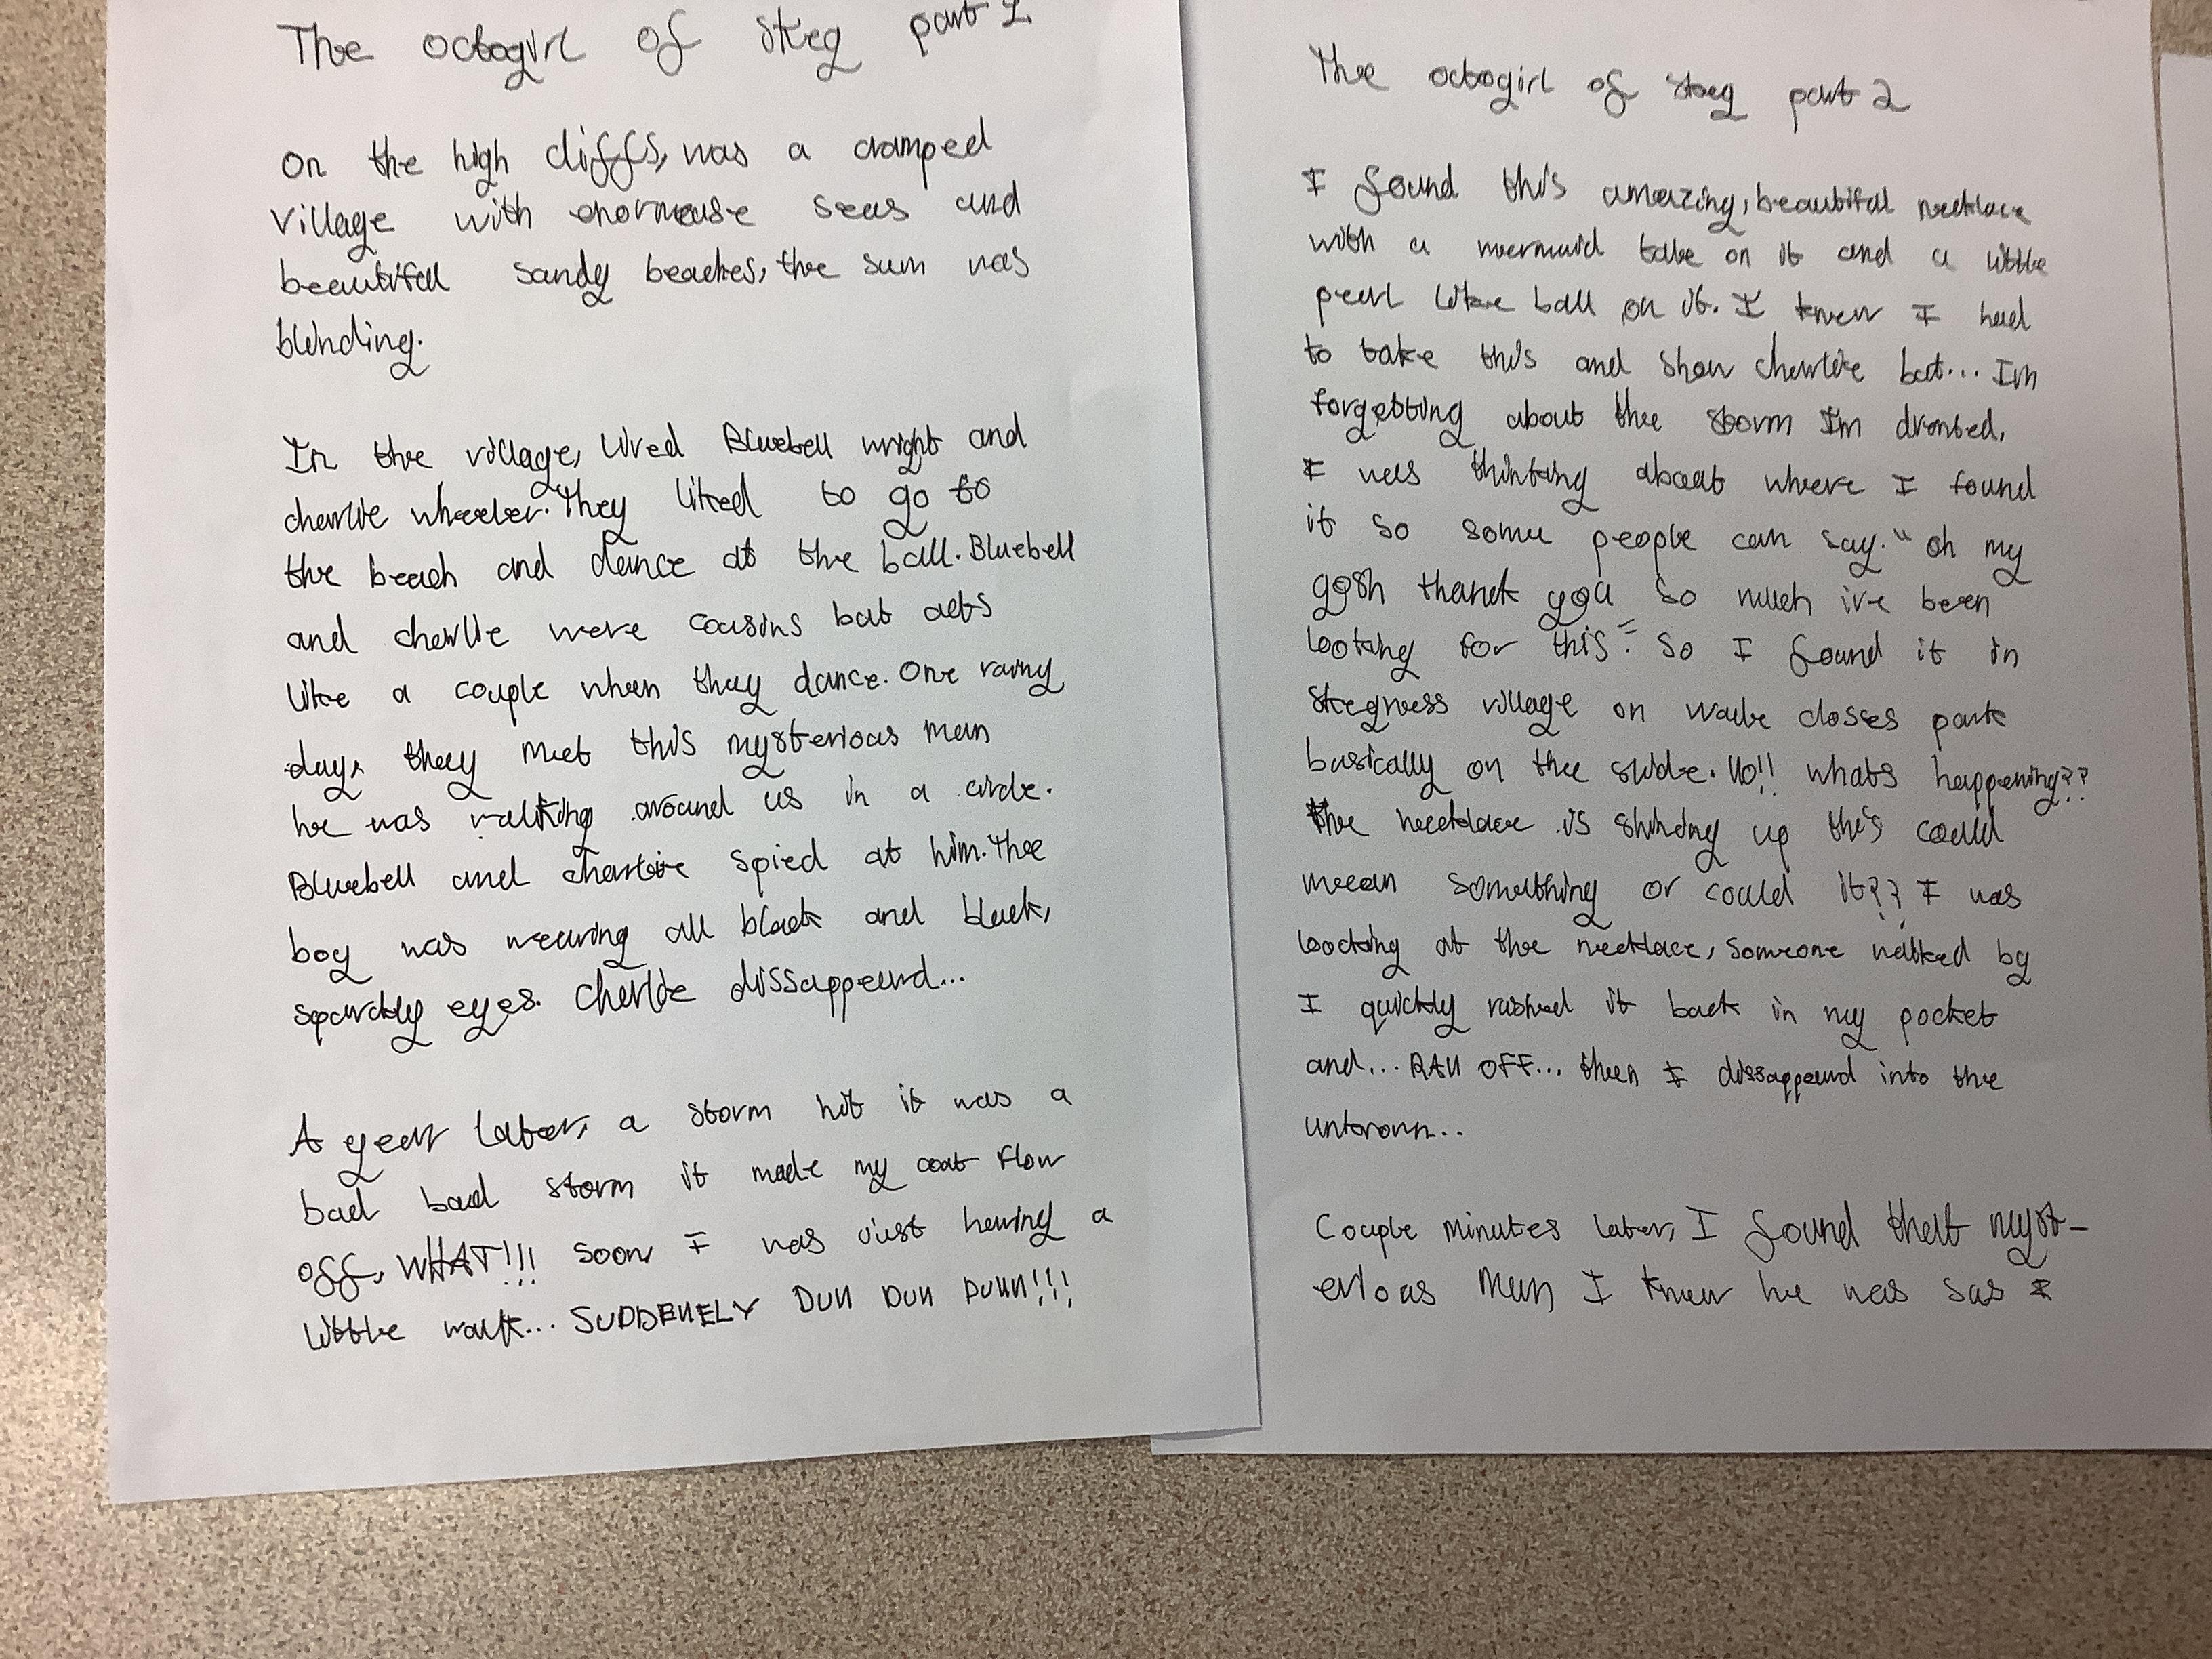 The octogirl of skeg part 1
On the high cliffs, was a cramped
village with enormouse seas and
beautifull sandy beaches, the sun was
blinding.
In the village, lived Bluebell wright and
charlie wheeler. They liked to go to
the beach and dance at the ball. Bluebell
and charlie were cousins but acts
like a couple when they dance. One rainy
day, they meet this mysterious man
he was walking around us in a circle.
Bluebell and charlie spied at him. The
boy was wearing all black and black,
sparckly eyes. Charlie dissappeard...
A year later, a storm hit it was a
bad bad storm it made my coat flow
off, WHAT!!! Soon I was just having a
little walk... SUDDENELY DUN DUN DUNN!!!
The octogirl of skeg part 2
I found this amazing, beautifull necklace
with a mermaid tale on it and a little
pearl like ball on it. I knew I had
to take this and show charlie but... Im
forgetting about the storm Im dronted,
I was thinking about where I found
it so some people can say. "oh my
gosh thank you so much ive been
looking for this" So I found it in
skegness village on wade closses park
basically on the slide. No!! whats happening??
the necklace is shining up this could
mean something or could it?? I was
loocking at the necklace, someone walked by
I quickly rushed it back in my pocket
and... RAN OFF... then I dissappeard into the
unknown...
Couple minutes later, I found that myst-
erioas man I knew he was sas